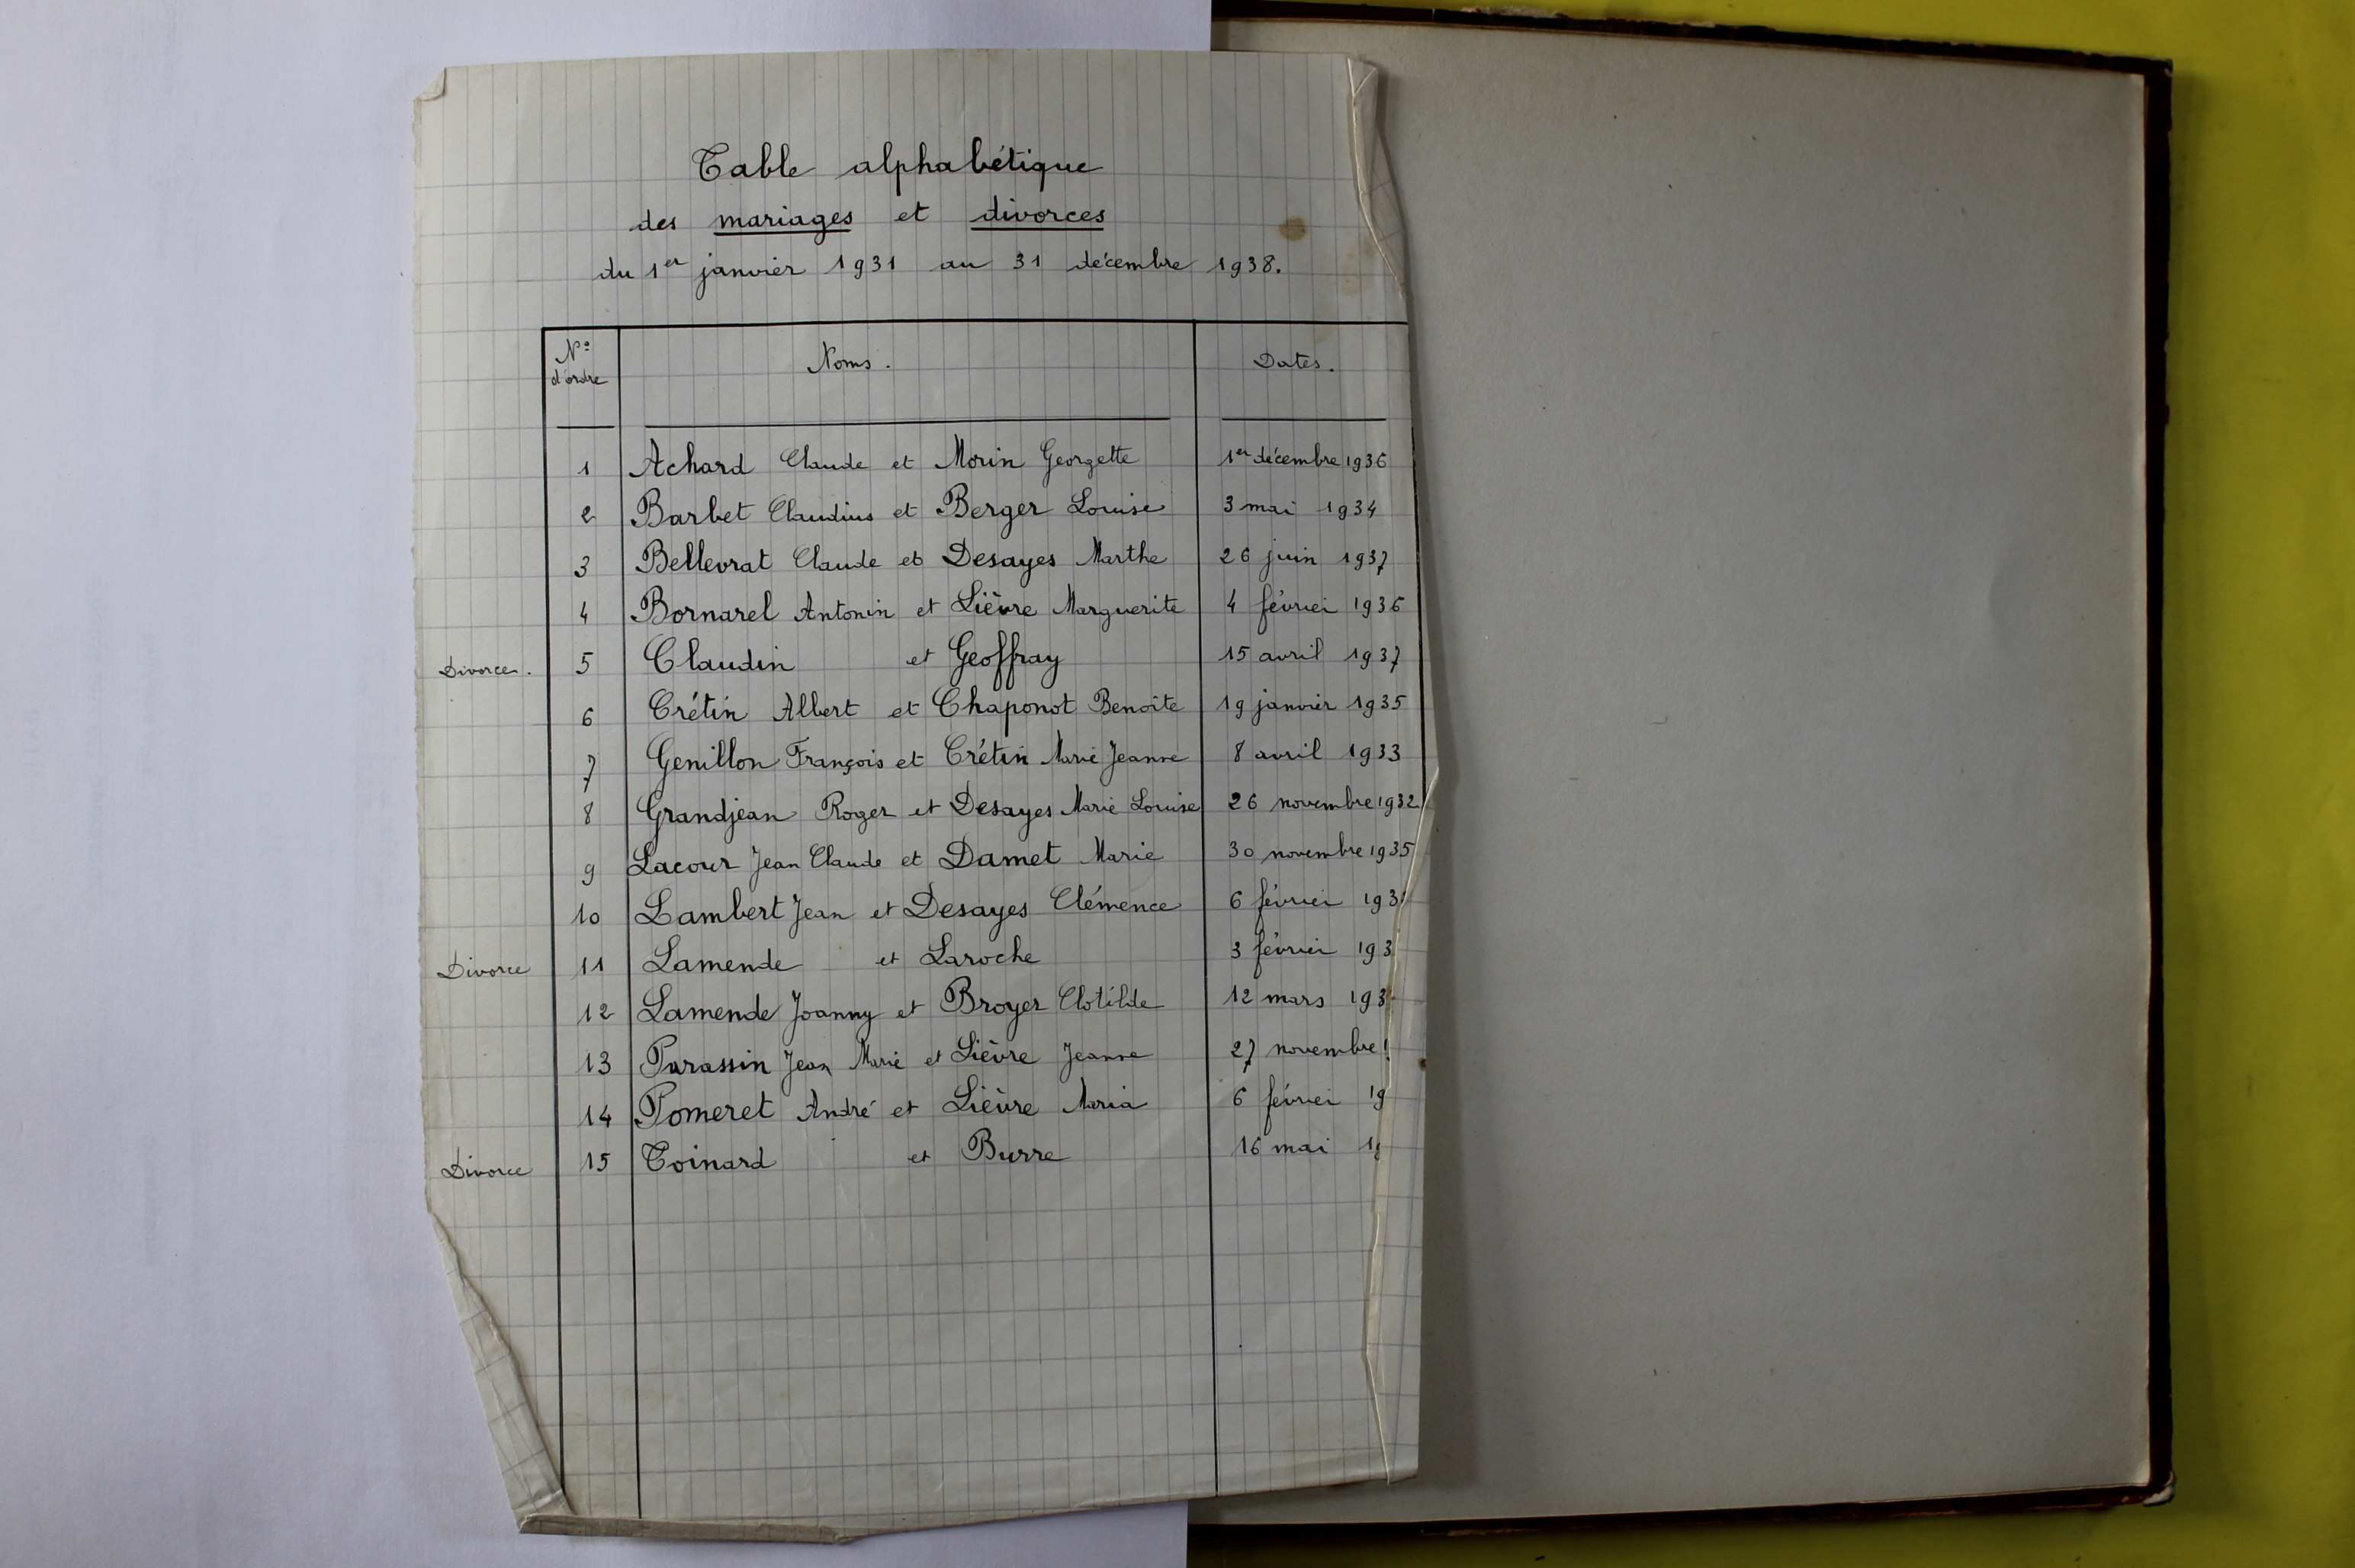 Table alphabétique
des mariages et divorces
du 1er janvier 1931 au 31 décembre 1938.
No d'ordre Noms. Dates.
1 Achard Claude et Morin Georgette 1er décembre 1936
2 Barbet Claudius et Berger Louise 3 mai 1934
3 Bellevrat Claude et Desayes Marthe 26 juin 1937
4 Bornarel Antonin et Lièvre Marguerite 4 février 1936
Divorce. 5 Claudin et Geoffray 15 avril 1937
6 Crétin Albert et Chaponot Benoîte 19 janvier 1935
7 Genillon François et Crétin Marie Jeanne 8 avril 1933
8 Grandjean Roger et Desayes Marie Louise 26 novembre 1932
9 Lacour Jean Claude et Damet Marie 30 novembre 1935
10 Lambert Jean et Desayes Clémence 6 février 193
Divorce 11 Lamende et Laroche 3 février 193
12 Lamende Joanny et Broyer Clotilde 12 mars 193
13 Parassin Jean Marie et Lièvre Jeanne 27 novembre
14 Pomeret André et Lièvre Maria 6 février 19
Divorce 15 Toinard et Burre 16 mai 1